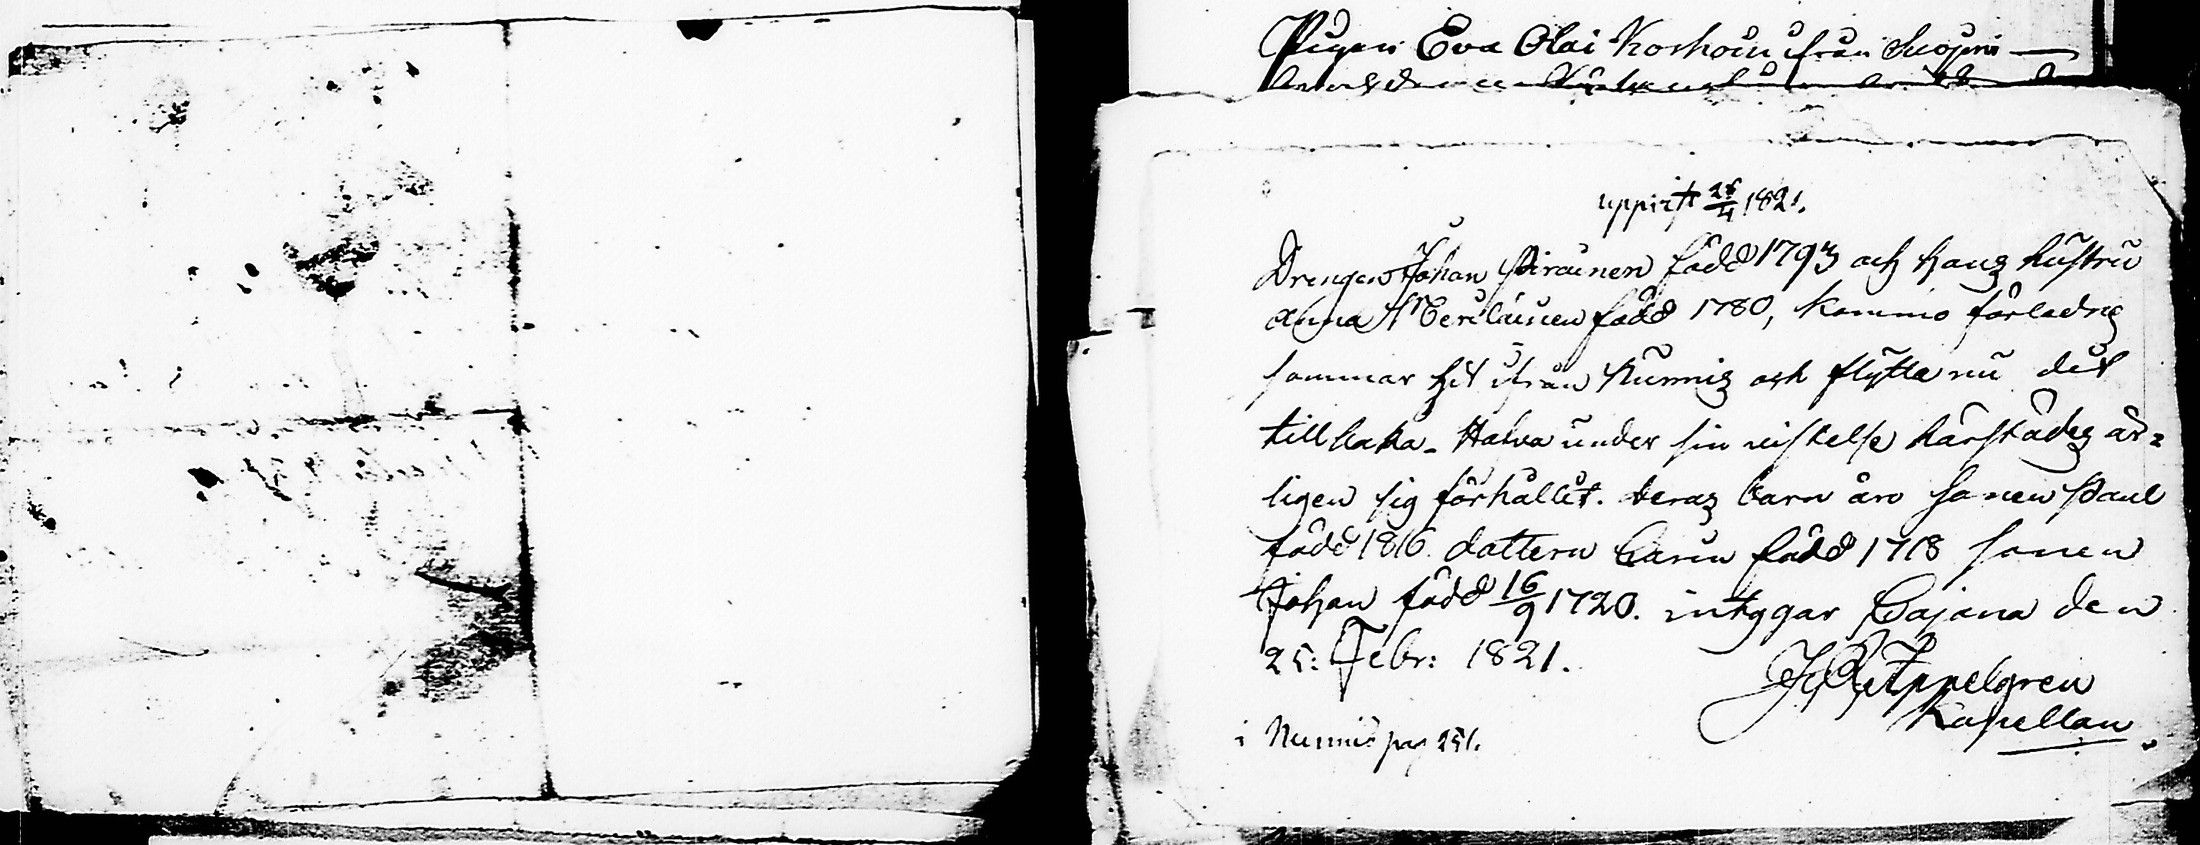 Pigan Eva Olai Korhoin ifrån
uppvist 25/4 1821.
Drengen Johan Piirainen född 1793 och hans hustru
Anna Meriläinen född 1780, kommo förledne
sommar hit ifrån Nurmis och flytta nu dit
tillbaka. Hafva under sin vistelse härstädes är=
ligen sig förhållit. deras barn äro sonen Paul
född 1816. dottern Carin född 1718 sonen
Johan född 16/9 1720. intygar Cajana den
25: Febr: 1821.
Appelgren
Kapellan
i Nurmis pag 251.